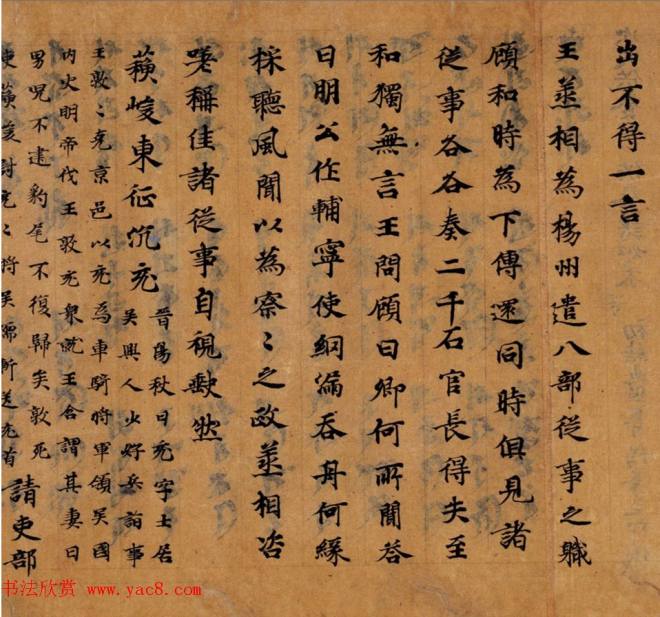 出不得一言
王丞相為楊州遣八部從事之職
顧和時為下傳還同時俱見諸
從事各各奏二千石官長得失至
和獨無言王問顧曰卿何所聞荅
曰明公作輔寧使網漏吞舟何緣
採聽風聞以為察〻之政丞相咨
嗟稱佳諸從事自視缺然
蘇峻東征沉充
晉陽秋曰充字士居
吳興人少好兵諂事
王敦〻克京邑以充為車騎將軍領吳國
內史明帝伐王敦充衆就王含謂其妻曰
男兒不建豹尾不復歸矣敦死
蘇峻討充〻將吳儒所送充首
請吏部
书法欣赏 www.yac8.com